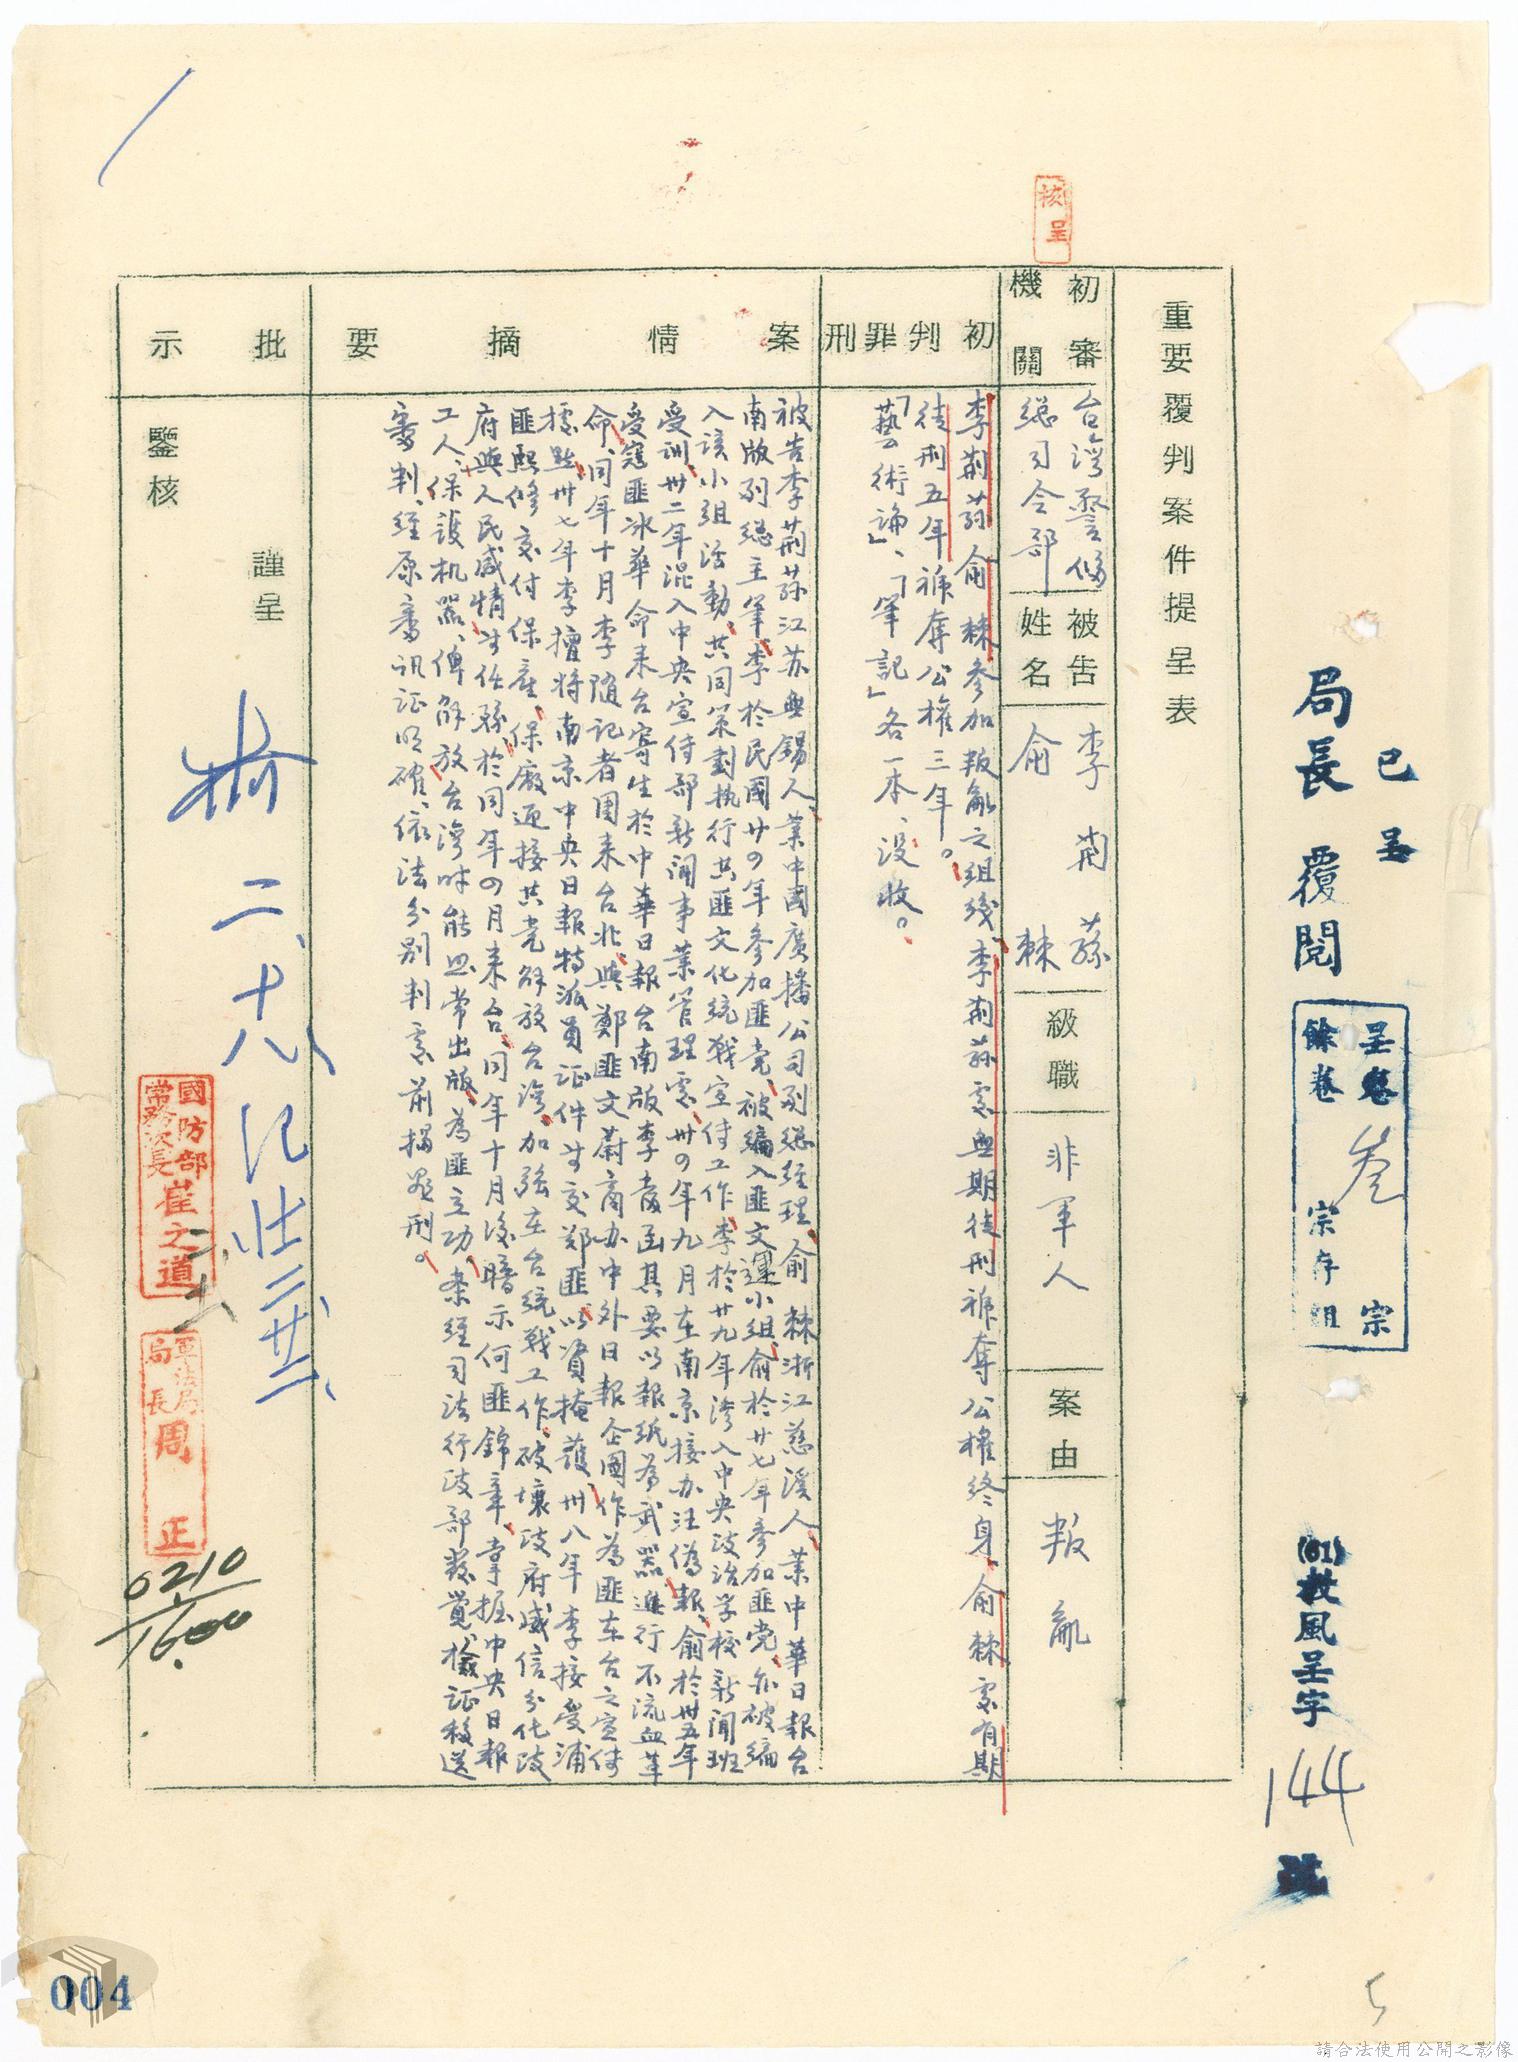 已呈
局長覆閱
呈卷叁宗
餘卷宗存組
(61)教風呈字144號
重要覆判案件提呈表
核呈
初審機關
台灣警備總司令部
被告姓名
李荊蓀
俞棘
級職
非軍人
案由
叛亂
初判罪刑
李荊蓀俞棘參加叛亂之組織、李荊蓀處無期徒刑褫奪公權終身、俞棘處有期
徒刑五年褫奪公權三年。
「藝術論」、「筆記」各一本、沒收。
案情摘要
被告李荊蓀江苏無錫人、業中國廣播公司副總經理、俞棘浙江慈溪人、業中華日報台
南版副總主筆、李於民國廿四年參加匪党、被編入匪文運小組、俞於廿七年參加匪党、亦被編
入該小組活動、共同策劃執行共匪文化統戰宣传工作、李於廿九年潛入中央政治学校新聞班
受訓、卅二年混入中央宣传部新聞事業管理處、卅四年九月在南京接办汪偽報、俞於卅五年
受寇匪冰華命来台寄生於中華日報台南版李發函其要以報紙為武器進行不流血革
命、同年十月李隨記者團来台北、與鄭匪文蔚商办中外日報企圖作為匪在台之宣传
據點、卅七年李擅將南京中央日報特派員证件等交鄭匪以資掩護、卅八年李接受浦
匪熙修交付保産、保廠迎接共党解放台湾、加強在台統戰工作、破壞政府威信分化政
府與人民感情等任務、於同年四月来台、同年十月後暗示何匪錦章、掌握中央日報
工人、保護机器、俾解放台湾时能照常出版、為匪立功、案經司法行政部發覺、檢证移送
審判、經原審訊证明確、依法分別判處前揭罪刑。
批示
謹呈
鑒核
二、十八
國防部常務次長崔之道
軍法局局長周正
0210
1600
004
5
請合法使用公開之影像